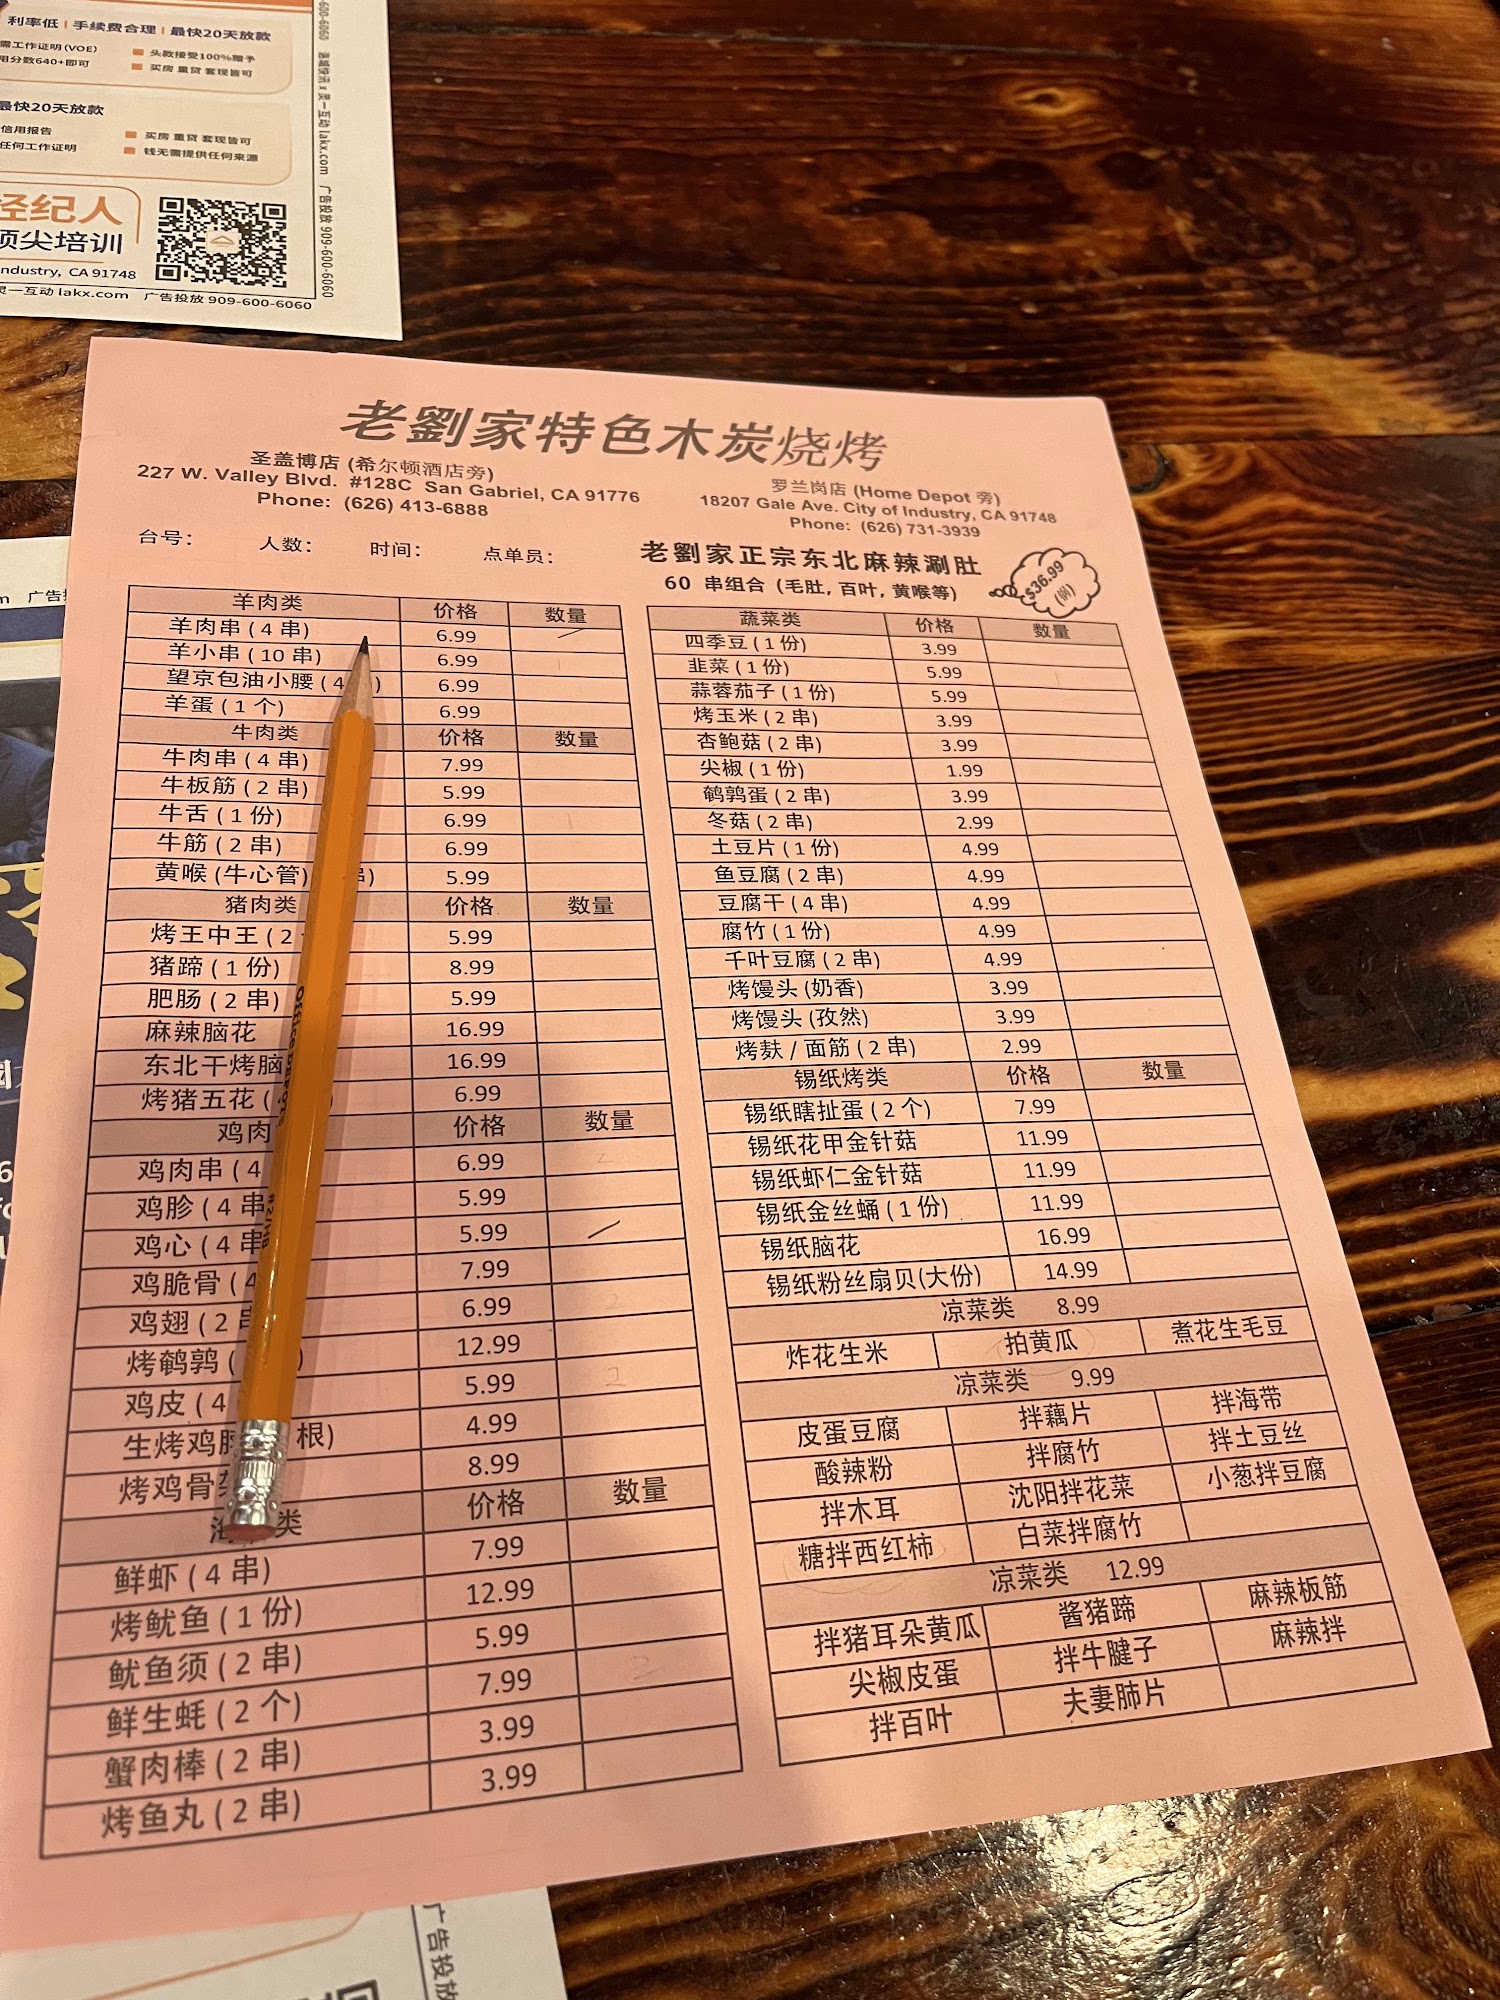 利率低 | 手续费合理 | 最快20天放款
需工作证明(VOE)
头款接受100%赠予
用分数640+即可
买房 重贷 套现皆可
最快20天放款
信用报告
买房 重贷 套现皆可
任何工作证明
钱无需提供任何来源
经纪人
顶尖培训
ndustry, CA 91748
灵一互动 lakx.com 广告投放 909-600-6060
-600-6060 洛城快讯 x 灵一互动 lakx.com 广告投放 909-600-6060
老劉家特色木炭烧烤
圣盖博店 (希尔顿酒店旁)
227 W. Valley Blvd. #128C San Gabriel, CA 91776
Phone: (626) 413-6888
罗兰岗店 (Home Depot 旁)
18207 Gale Ave. City of Industry, CA 91748
Phone: (626) 731-3939
台号: 人数: 时间: 点单员:
老劉家正宗东北麻辣涮肚
60 串组合 (毛肚, 百叶, 黄喉等)
$36.99
(锅)
羊肉类 价格 数量
羊肉串 ( 4 串) 6.99
羊小串 ( 10 串) 6.99
望京包油小腰 ( 4 ) 6.99
羊蛋 ( 1 个) 6.99
牛肉类 价格 数量
牛肉串 ( 4 串) 7.99
牛板筋 ( 2 串) 5.99
牛舌 ( 1 份) 6.99 1
牛筋 ( 2 串) 6.99
黄喉 (牛心管) 串) 5.99
猪肉类 价格 数量
烤王中王 ( 2 5.99
猪蹄 ( 1 份) 8.99
肥肠 ( 2 串) 5.99
麻辣脑花 16.99
东北干烤脑 16.99
烤猪五花 ( ) 6.99
鸡肉 价格 数量
鸡肉串 ( 4 6.99 2
鸡胗 ( 4 串 5.99
鸡心 ( 4 串 5.99
鸡脆骨 ( 4 7.99
鸡翅 ( 2 串 6.99 2
烤鹌鹑 ( ) 12.99
鸡皮 ( 4 5.99 1
生烤鸡 根) 4.99
烤鸡骨 8.99
类 价格 数量
鲜虾 ( 4 串) 7.99
烤鱿鱼 ( 1 份) 12.99
鱿鱼须 ( 2 串) 5.99
鲜生蚝 ( 2 个) 7.99 2
蟹肉棒 ( 2 串) 3.99
烤鱼丸 ( 2 串) 3.99
蔬菜类 价格 数量
四季豆 ( 1 份) 3.99
韭菜 ( 1 份) 5.99 1
蒜蓉茄子 ( 1 份) 5.99
烤玉米 ( 2 串) 3.99
杏鲍菇 ( 2 串) 3.99
尖椒 ( 1 份) 1.99
鹌鹑蛋 ( 2 串) 3.99
冬菇 ( 2 串) 2.99
土豆片 ( 1 份) 4.99
鱼豆腐 ( 2 串) 4.99
豆腐干 ( 4 串) 4.99
腐竹 ( 1 份) 4.99
千叶豆腐 ( 2 串) 4.99
烤馒头 (奶香) 3.99
烤馒头 (孜然) 3.99
烤麸 / 面筋 ( 2 串) 2.99
锡纸烤类 价格 数量
锡纸瞎扯蛋 ( 2 个) 7.99
锡纸花甲金针菇 11.99
锡纸虾仁金针菇 11.99
锡纸金丝蛹 ( 1 份) 11.99
锡纸脑花 16.99
锡纸粉丝扇贝(大份) 14.99
凉菜类 8.99
炸花生米 拍黄瓜 煮花生毛豆
凉菜类 9.99
皮蛋豆腐 拌藕片 拌海带
酸辣粉 拌腐竹 拌土豆丝
拌木耳 沈阳拌花菜 小葱拌豆腐
糖拌西红柿 白菜拌腐竹
凉菜类 12.99
拌猪耳朵黄瓜 酱猪蹄 麻辣板筋
尖椒皮蛋 拌牛腱子 麻辣拌
拌百叶 夫妻肺片
广告投放